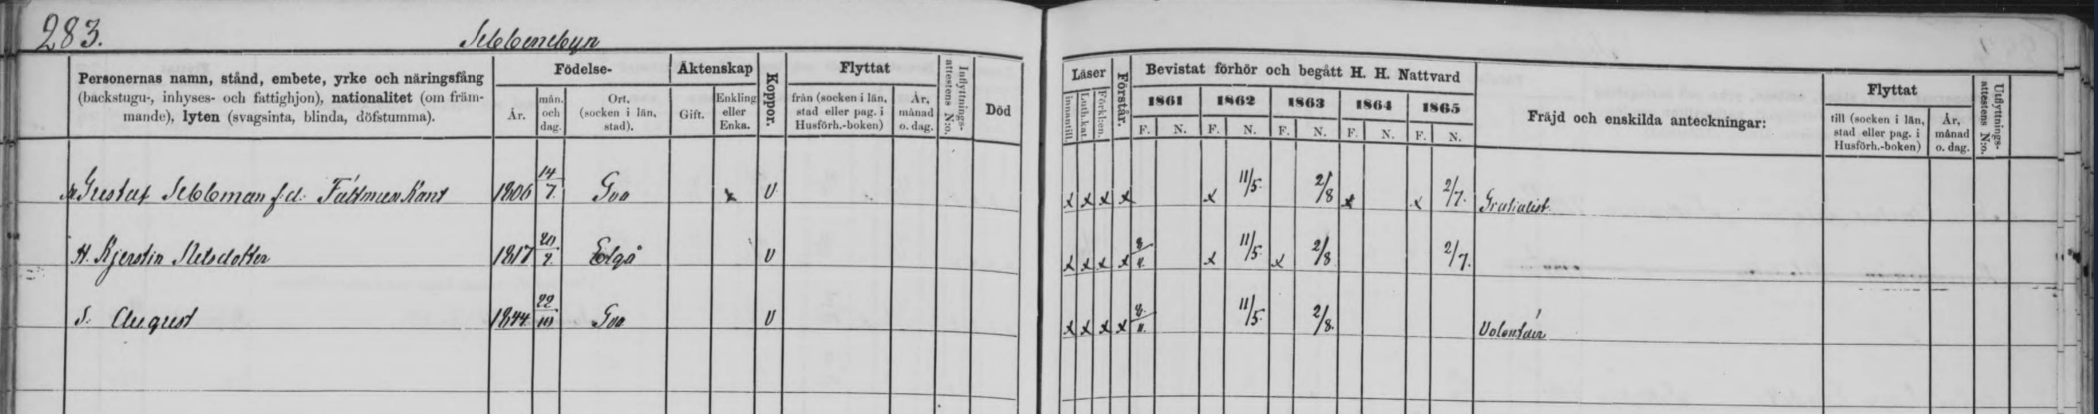 283.
Personernas namn, stånd, embete, yrke och näringsfång
(backstugu-, inhyses- och fattighjon), nationalitet (om främ-
mande), lyten (svagsinta, blinda, döfstumma).
Födelse-
År.
mån. och dag.
Ort, (socken i län, stad).
Äktenskap
Gift.
Enkling eller Enka.
Koppor.
Flyttat
från (socken i län, stad eller pag. i Husförh.-boken)
År, månad o. dag.
Inflyttnings-attestens N:o.
Död
Läser
Innantill.
Luth. kat.
Förklen.
Förstår.
Bevistat förhör och begått H. H. Nattvard
1861 1862 1863 1864 1865
F. N. F. N. F. N. F. N. F. N.
Fräjd och enskilda anteckningar:
Flyttat
till (socken i län, stad eller pag. i Husförh.-boken)
År, månad o. dag.
Utflyttnings-attestens N:o.
Gustaf f.d. 1806 14/7 x v x x x x x 11/5. 2/8 x x 2/7. Gratialist
H. Kjerstin 1817 v x x x x x 11/5. x 2/8 2/7.
S. August 1844 22/10 v x x x x 11/5. 2/8. Volontair